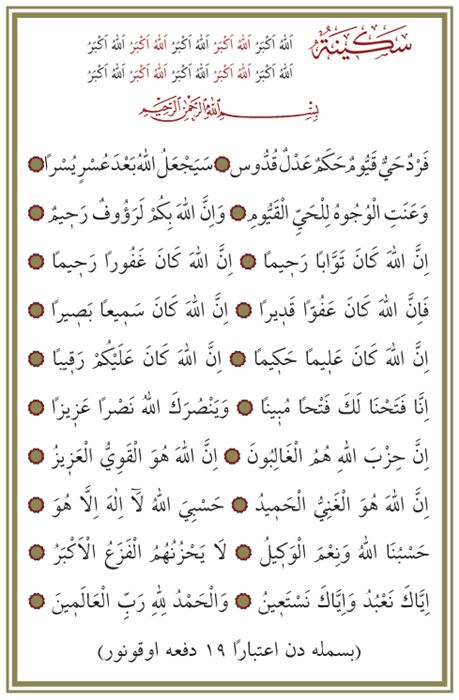 سَكِينَةٌ
اَللهُ اَكْبَرُ اَللهُ اَكْبَرُ اَللهُ اَكْبَرُ اَللهُ اَكْبَرُ اَللهُ اَكْبَرُ
اَللهُ اَكْبَرُ اَللهُ اَكْبَرُ اَللهُ اَكْبَرُ اَللهُ اَكْبَرُ اَللهُ اَكْبَرُ
بِسْمِ اللهِ الرَّحْمٰنِ الرَّحِيمِ
فَرْدٌ حَيٌّ قَيُّومٌ حَكَمٌ عَدْلٌ قُدُّوس سَيَجْعَلُ اللهُ بَعْدَ عُسْرٍ يُسْرًا
وَعَنَتِ الْوُجُوهُ لِلْحَيِّ الْقَيُّومِ وَاِنَّ اللهَ بِكُمْ لَرَؤُوفٌ رَحِيمٌ
اِنَّ اللهَ كَانَ تَوَّابًا رَحِيمًا اِنَّ اللهَ كَانَ غَفُورًا رَحِيمًا
فَاِنَّ اللهَ كَانَ عَفُوًّا قَدِيرًا اِنَّ اللهَ كَانَ سَمِيعًا بَصِيرًا
اِنَّ اللهَ كَانَ عَلِيمًا حَكِيمًا اِنَّ اللهَ كَانَ عَلَيْكُمْ رَقِيبًا
اِنَّا فَتَحْنَا لَكَ فَتْحًا مُبِينًا وَيَنْصُرَكَ اللهُ نَصْرًا عَزِيزًا
اِنَّ حِزْبَ اللهِ هُمُ الْغَالِبُونَ اِنَّ اللهَ هُوَ الْقَوِيُّ الْعَزِيزُ
اِنَّ اللهَ هُوَ الْغَنِيُّ الْحَمِيدُ حَسْبِيَ اللهُ لَآ اِلٰهَ اِلَّا هُوَ
حَسْبُنَا اللهُ وَنِعْمَ الْوَكِيلُ لَا يَحْزُنُهُمُ الْفَزَعُ الْاَكْبَرُ
اِيَّاكَ نَعْبُدُ وَاِيَّاكَ نَسْتَعِينُ وَالْحَمْدُ لِلهِ رَبِّ الْعَالَمِينَ
(بسمله دن اعتبارًا ١٩ دفعه اوقونور)